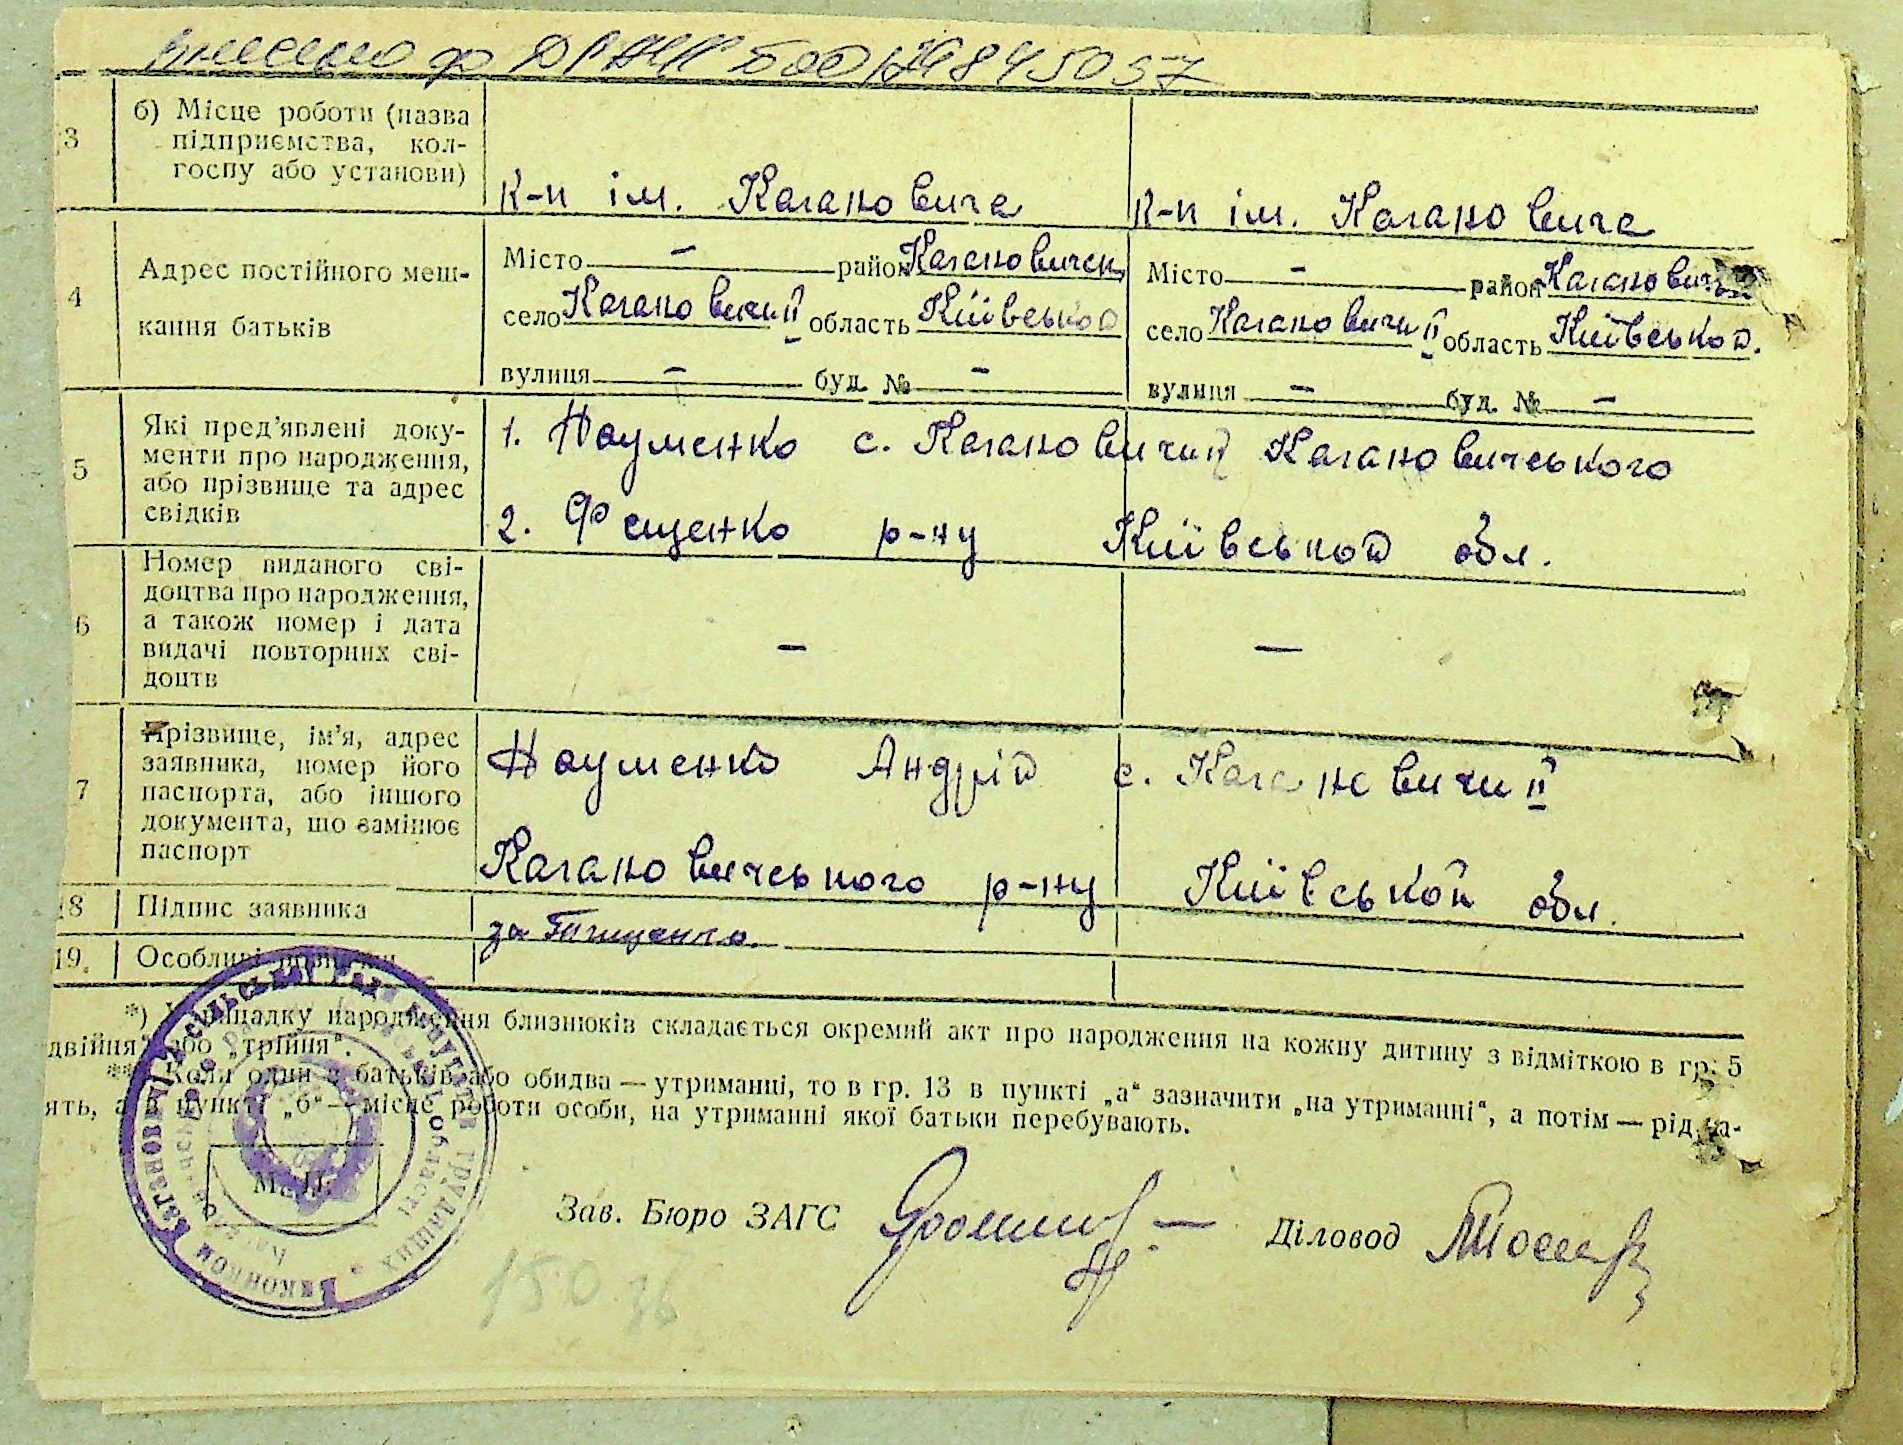 внесено ф ДРАЦС 00017984 5037
3 б) Місце роботи (назва
підприємства, кол-
госпу або установи)
К-п ім. Кагановича К-п ім. Кагановича
4 Адрес постійного меш-
кання батьків
Місто — район Кагановичск Місто — район
село Кагановичи II область Київськой село Кагановичи II область Київськой.
вулиця — буд. № — вулиця — буд. № —
5 Які пред’явлені доку-
менти про народження,
або прізвище та адрес
свідків
1. Науменко с. Кагановичи II Кагановичського
2. Фещенко р-ну Київськой обл.
6 Номер виданого сві-
доцтва про народження,
а також номер і дата
видачі повторних сві-
доцтв
— —
7 Прізвище, ім’я, адрес
заявника, номер його
паспорта, або іншого
документа, що замінює
паспорт
Науменко Андрій с. Кагановичи II
Кагановичського р-ну Київськой обл.
18 Підпис заявника за
19. Особливі
*) випадку народження близнюків складається окремий акт про народження на кожну дитину з відміткою в гр. 5
двійня“ або „трійня“.
** Коли один з батьків або обидва — утриманці, то в гр. 13 в пункті „а“ зазначити „на утриманні“, а потім — рід за-
ять, а в пункті „б“ — місце роботи особи, на утриманні якої батьки перебувають.
М. П.
Зав. Бюро ЗАГС Діловод